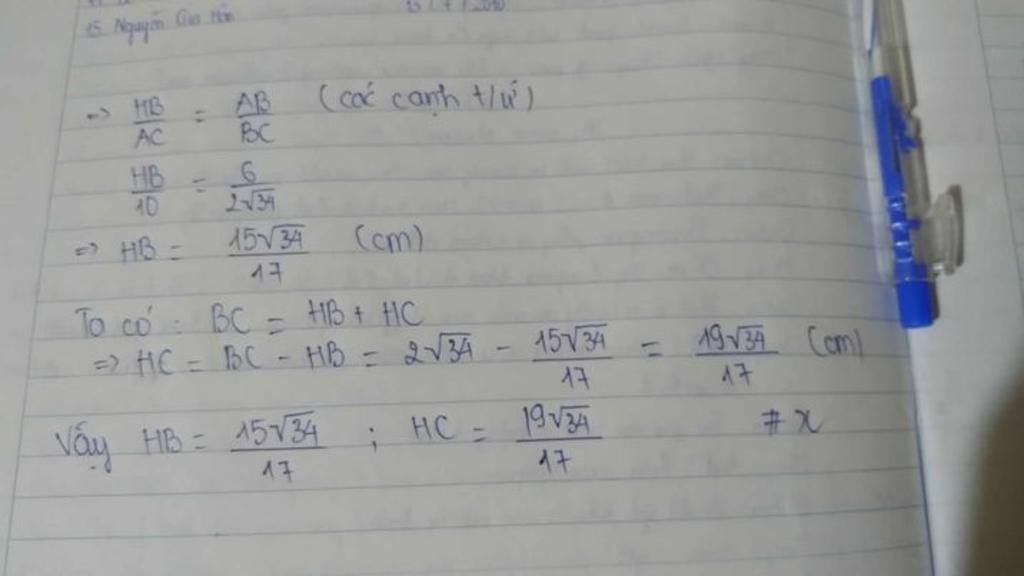 15 Nguyễn
=> HB/AC = AB/BC (các cạnh t/ứ)
HB/10 = 6/2√34
=> HB = 15√34/17 (cm)
Ta có : BC = HB + HC
=> HC = BC - HB = 2√34 - 15√34/17 = 19√34/17 (cm)
Vậy HB = 15√34/17 ; HC = 19√34/17 # x